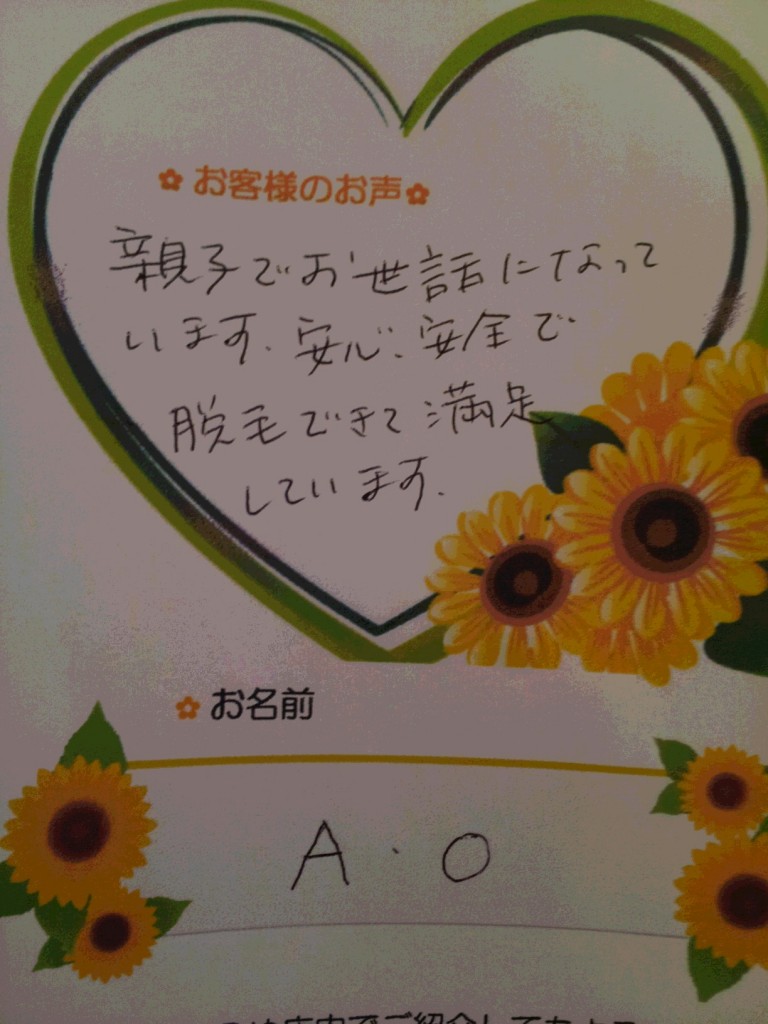 お客様のお声
親子でお世話になって
います。安心、安全で
脱毛できて満足
しています。
お名前
A・O